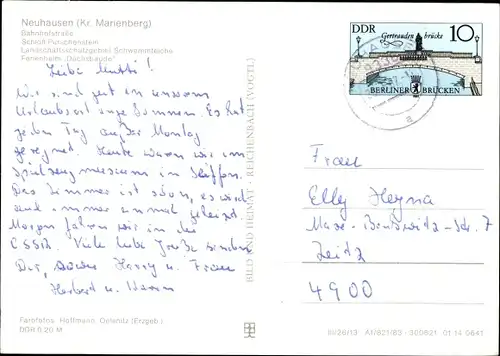 Neuhausen (Kr. Marienberg)
Bahnhofstraße
Schloß Purschenstein
Landschaftsschutzgebiet Schwemmteiche
Ferienheim „Dachsbaude“
Liebe Mutti!
Wir sind gut in unserem
Urlaubsort angekommen. Es hat
jeden Tag außer Montag
geregnet. Heute waren wir im
Spielzeugmuseum in Seiffen.
Das Zimmer ist schön, es wird
auch immer einmal geheizt.
Morgen fahren wir in die
CSSR. Viele liebe Grüße senden
Dir, Harry u. Frau
Herbert u.
Farbfotos: Hoffmann, Oelsnitz (Erzgeb.)
DDR 0,20 M
BILD UND HEIMAT · REICHENBACH (VOGTL)
DDR
Gertraudenbrücke
10
BERLINER BRÜCKEN
Frau
Elly Heyna
Max-Str. 7
Zeitz
4900
III/26/13 A1/821/83 300821 01 14 0641